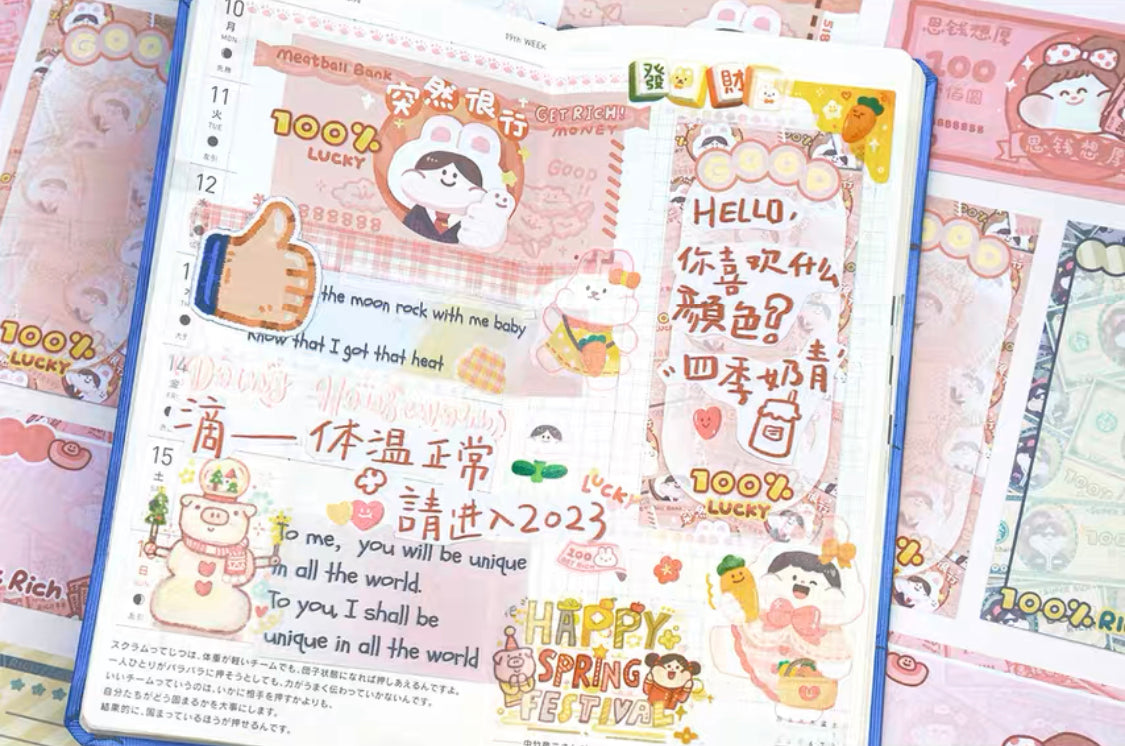 10
月
MON
先勝
19th WEEK
Meatball Bank
突然很行
GET RICH!
MONEY
100%
LUCKY
GOOD
!!
88888888
發
財
11
火
TUE
友引
12
水
14
金
15
土
日
the moon rock with me baby
Know that I got that heat
滴一体温正常
請进入2023
LUCKY
To me, you will be unique
in all the world.
To you, I shall be
unique in all the world
スクラムってじつは、体重が軽いチームでも、団子状態になれば押しあえるんですよ。
一人ひとりがバラバラに押そうとしても、力がうまく伝わっていかないんです。
いいチームっていうのは、いかに相手を押すかよりも、
自分たちがどう固まるかを大事にします。
結果的に、固まっているほうが押せるんです。
GOOD
HELLO,
你喜欢什么
顔色?
"四季奶青"
100%
LUCKY
100
GET RICH
HAPPY
SPRING
FESTIVAL
GOOD
100%
LUCKY
Rich
思钱想厚
100
思钱想厚
GOOD
100% Ri